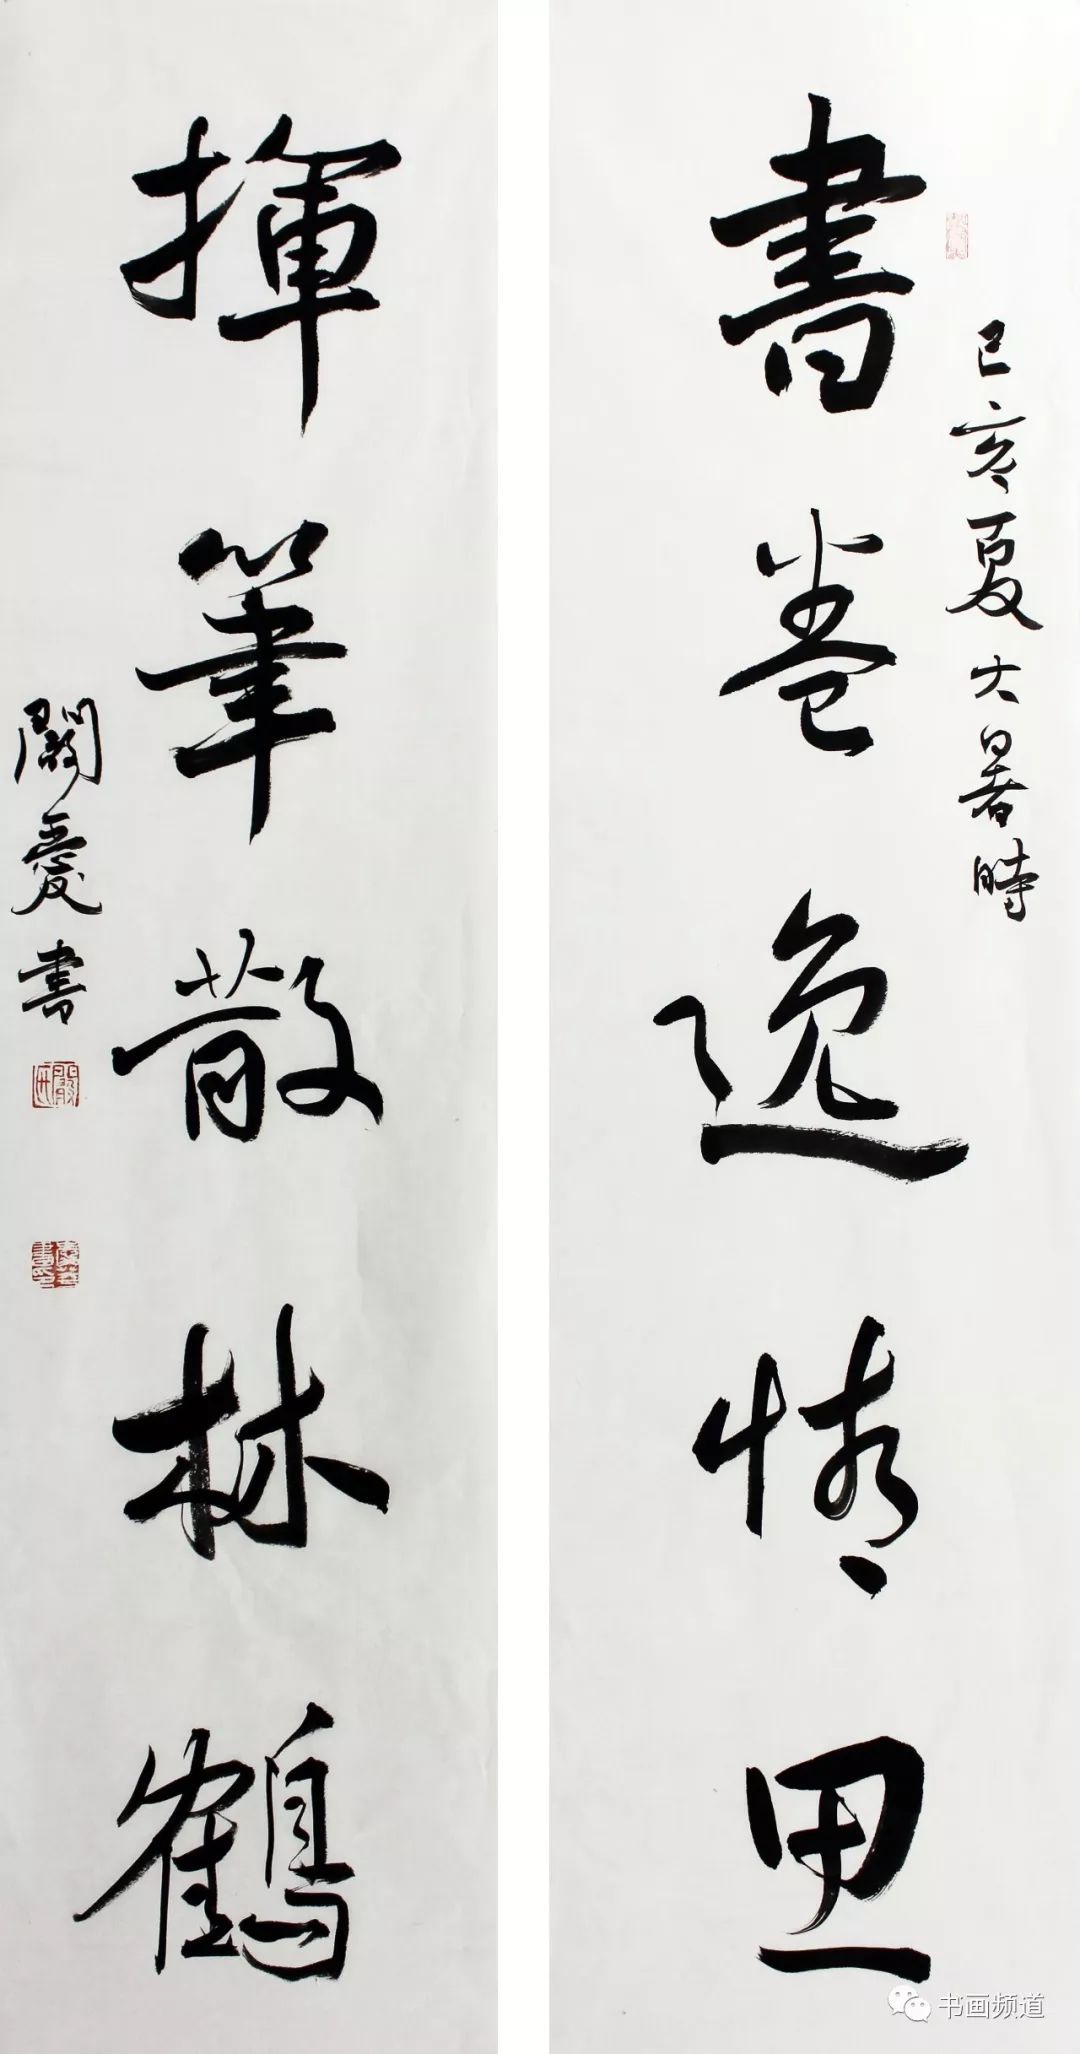 己亥夏大暑時
書卷逸情思
揮筆散林鶴
闞愛書
书画频道